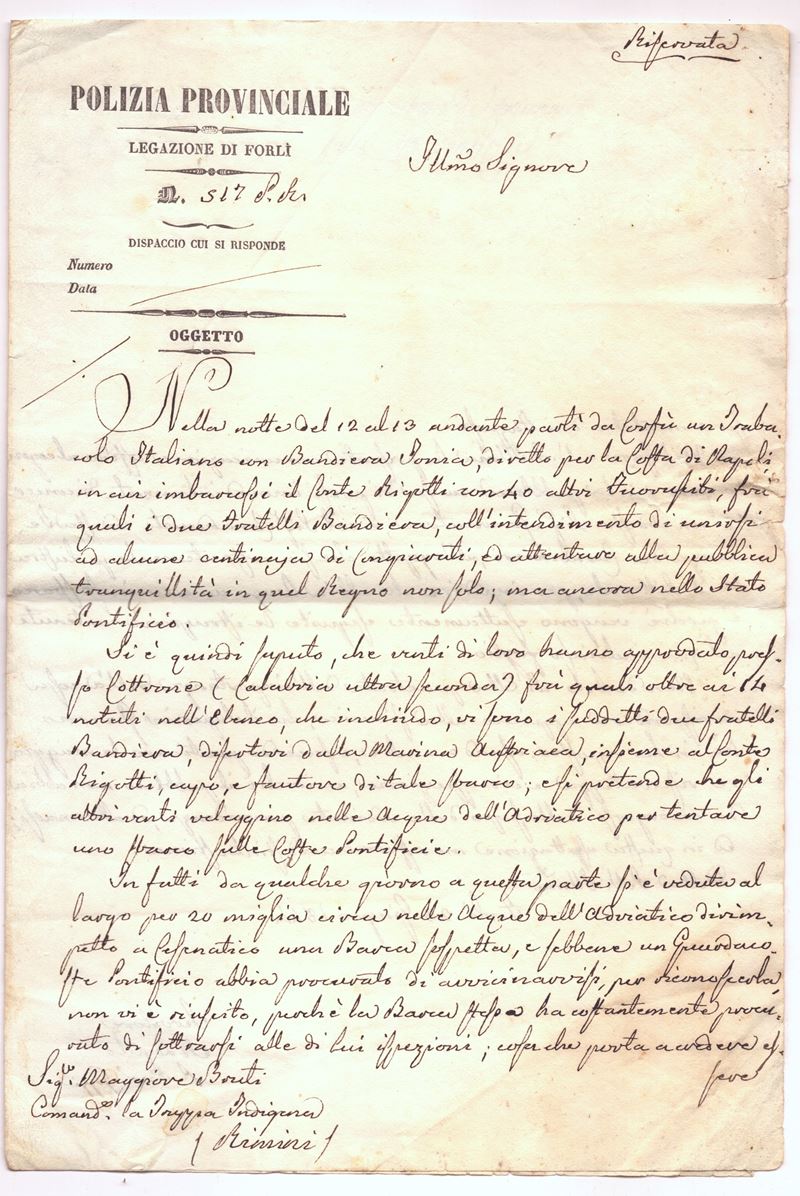 Riservata
POLIZIA PROVINCIALE
LEGAZIONE DI FORLÌ
N. 517 P. R.
Illmo Signore
DISPACCIO CUI SI RISPONDE
Numero
Data
OGGETTO
Nella notte del 12 al 13 andante partì da Corfù un Traba-
colo Italiano con Bandiera Jonia, diretto per la Costa di Napoli
in cui imbarcossi il Conte Rigotti con 40 altri Fuorusciti, frà
quali i due Fratelli Bandiera, coll'intendimento di unirsi
ad alcune centinaja di Congiurati, ed attentare alla pubblica
tranquillità in quel Regno non solo; ma ancora nello Stato
Pontificio.
Si è quindi saputo, che venti di loro hanno approdato pres-
so Cottrone (Calabria ultra seconda) frà quali oltre ai 14
notati nell'Elenco, che inchiudo, vi sono i suddetti due fratelli
Bandiera, disertori dalla Marina Austriaca, insieme al Conte
Rigotti, capo, e fautore di tale sbarco; e si pretende che gli
altri venti veleggino nelle Acque dell'Adriatico per tentare
uno sbarco sulle Coste Pontificie.
In fatti da qualche giorno a questa parte si è veduta al
largo per 20 miglia circa nelle Acque dell'Adriatico dirim-
petto a Cesenatico una Barca sospetta, e sebbene un Guardaco-
ste Pontificio abbia procurato di avvicinarvisi, per riconoscerla,
non vi è riuscito, perchè la Barca stessa ha costantemente procu-
rato di sottrarsi alle di lui ispezioni; cosa che porta a credere es-
sere
Sigr. Maggiore
Comande. la Truppa Indigena
(Rimini)